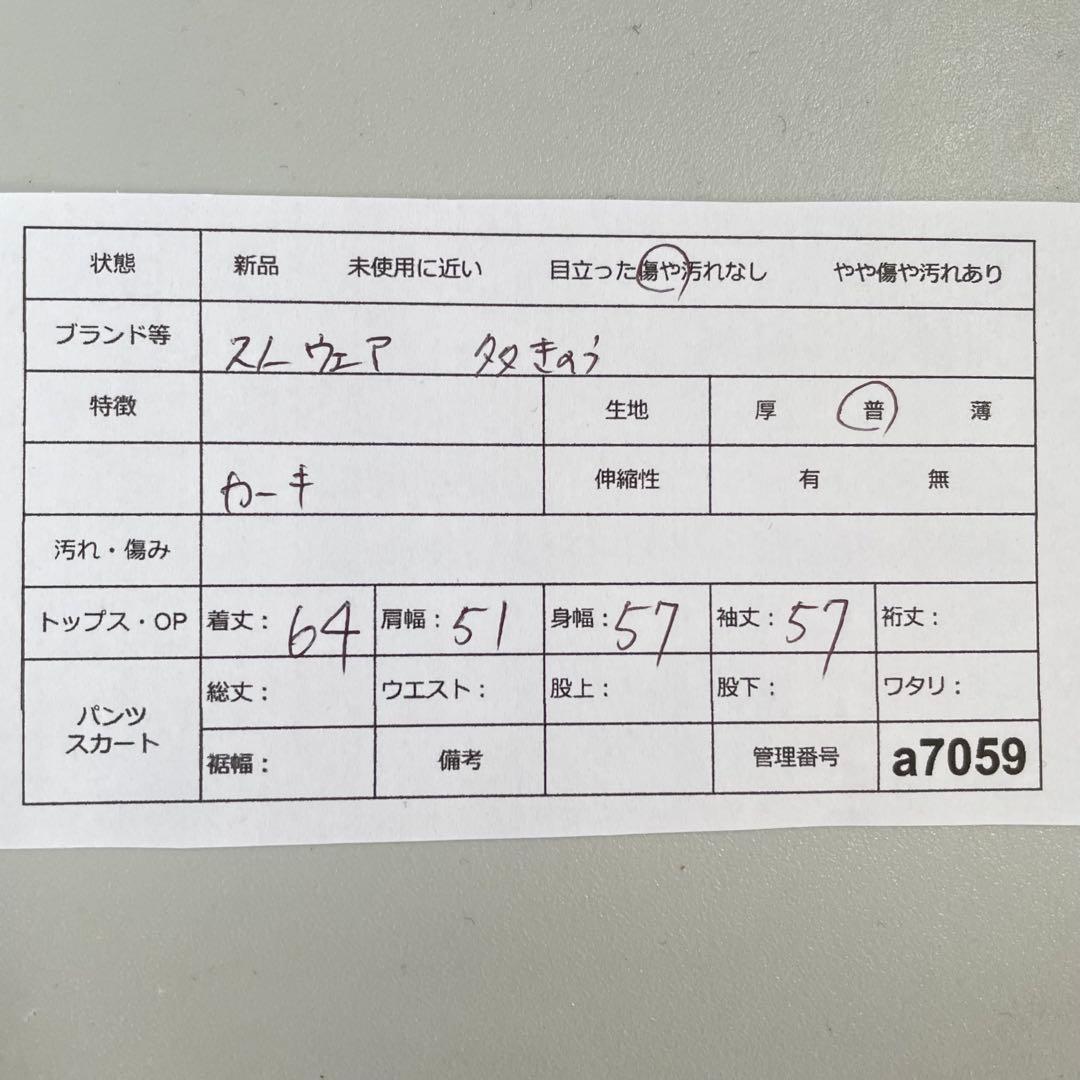 状態 新品 未使用に近い 目立った傷や汚れなし やや傷や汚れあり
ブランド等 ストウェア タタきのう
特徴 生地 厚 普 薄
カーキ 伸縮性 有 無
汚れ・傷み
トップス・OP 着丈: 64 肩幅: 51 身幅: 57 袖丈: 57 裄丈:
パンツ スカート 総丈: ウエスト: 股上: 股下: ワタリ:
裾幅: 備考 管理番号 a7059